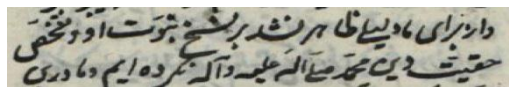 دارد برای ما دلیلی ظاهر نشد بر نسخ نبوت او و شخص
حقیت دین محمد صلی الله علیه و آله نکرده ایم و ما دری